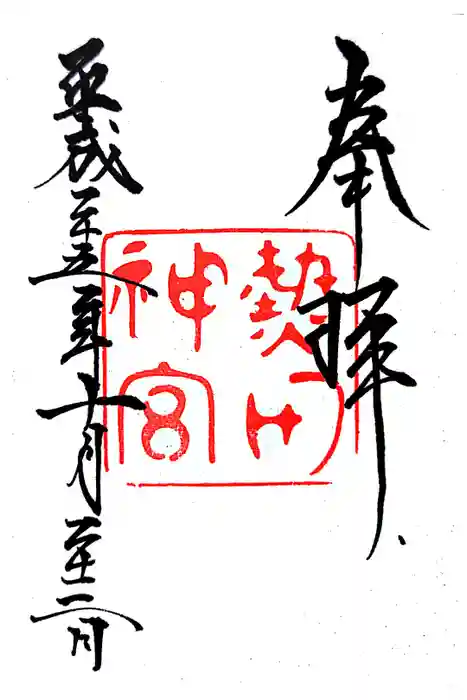 奉拝
熱田
神宮
平成二十五年十月二十二日